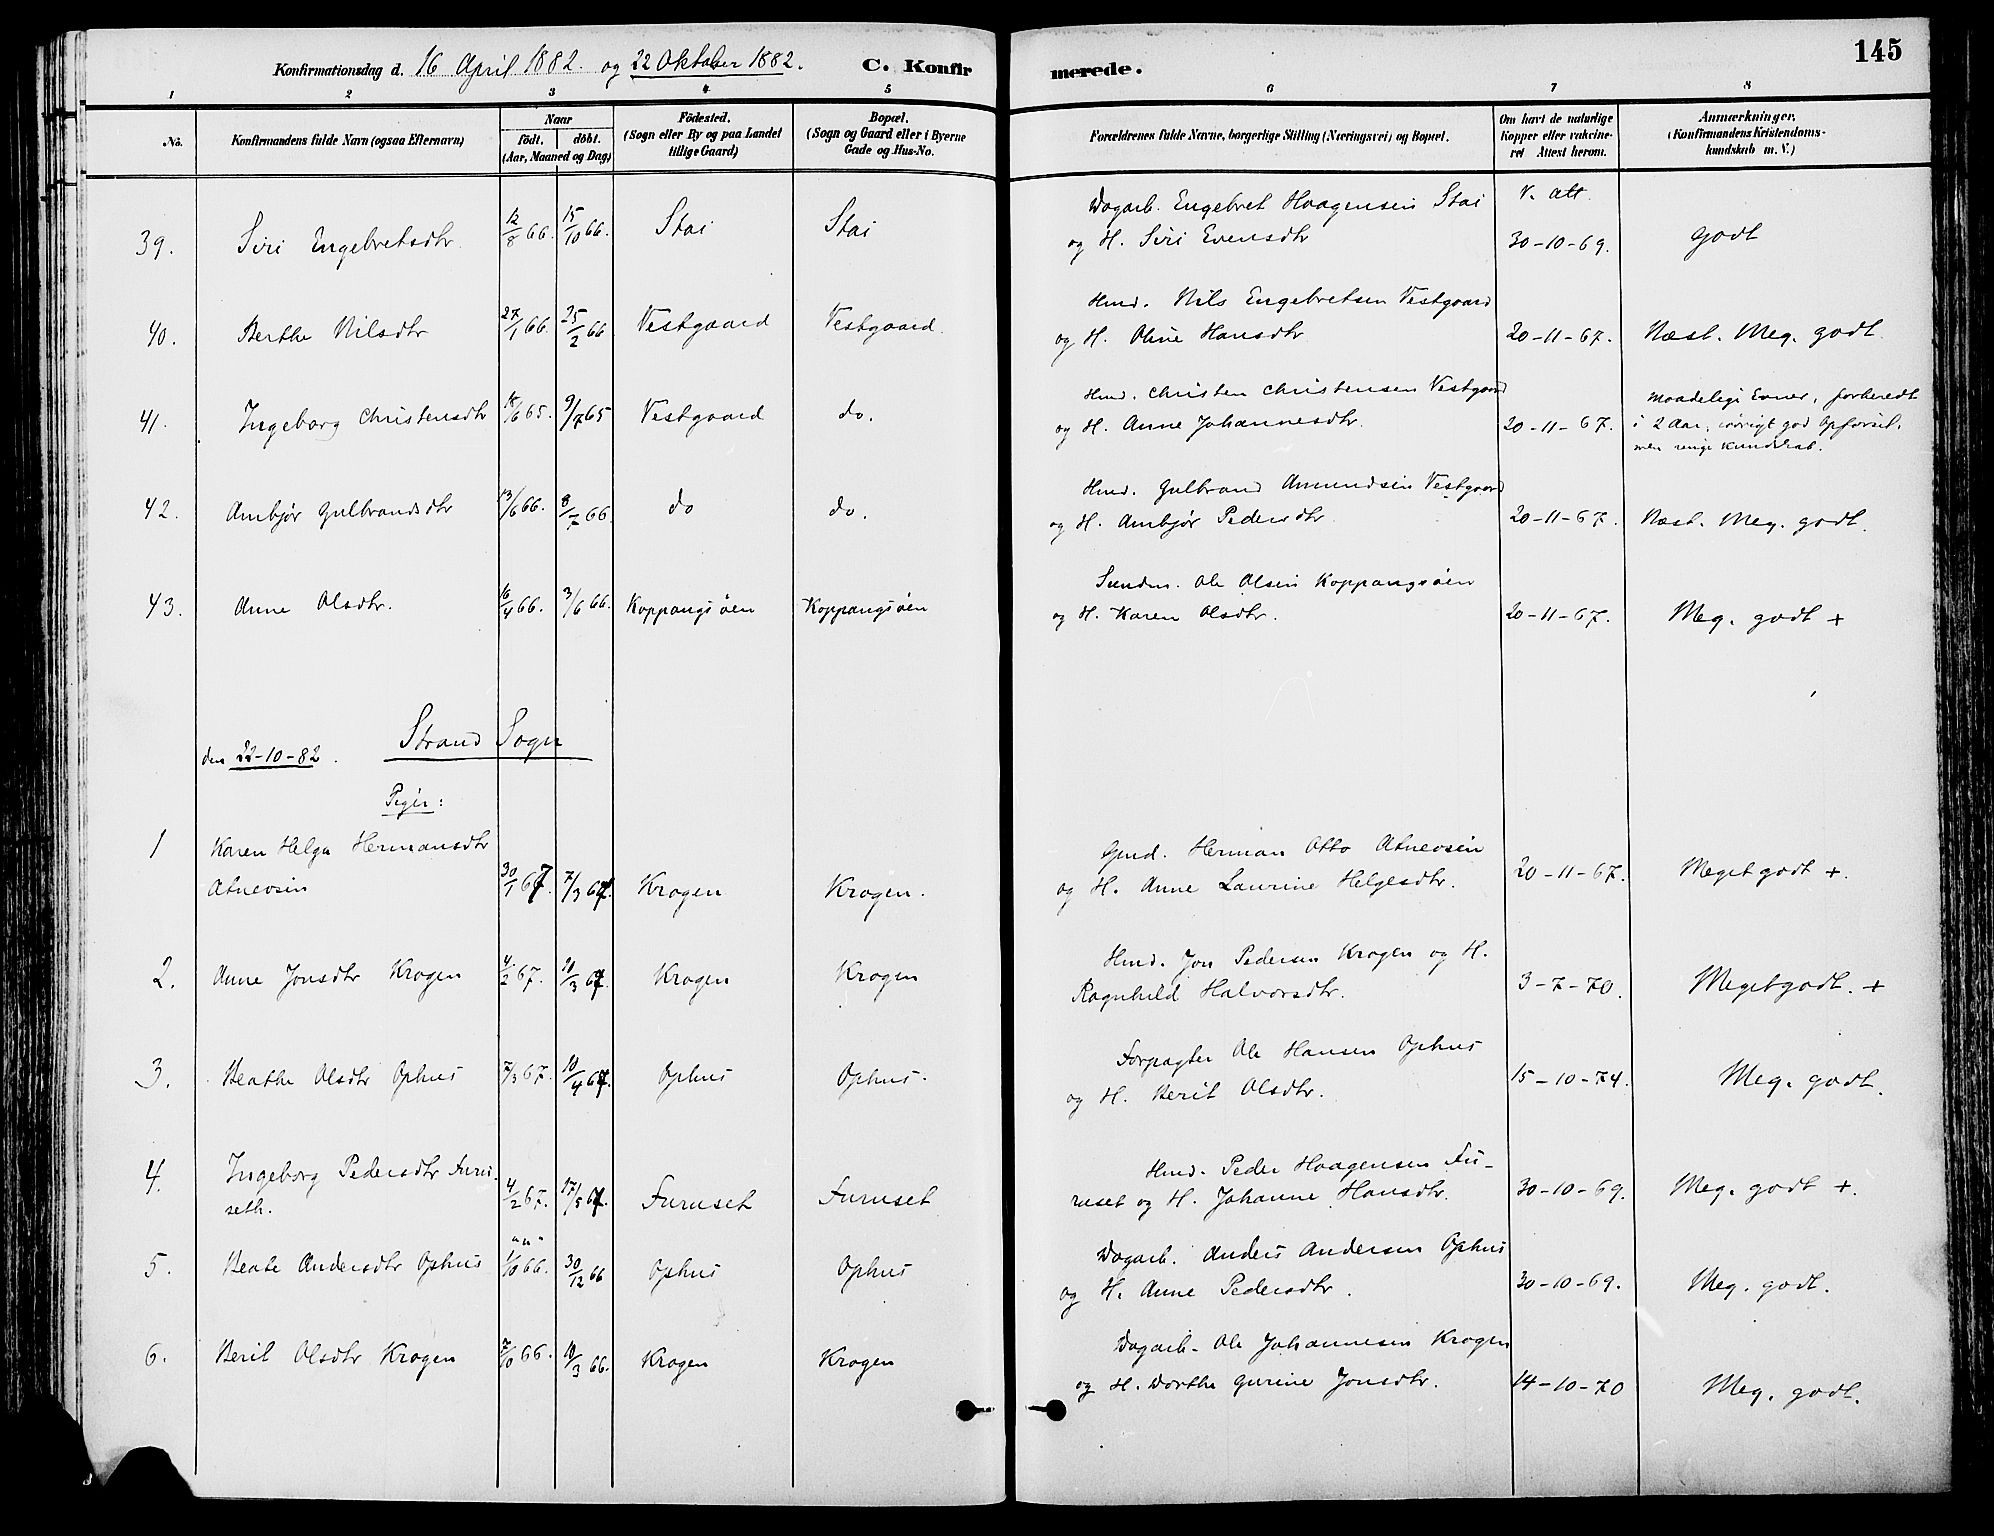 Konfirmationsdag d. 16 April 1882. og 22 Oktober 1882. C. Konfirmerede. 145
1 2 3 4 5 6 7 8
No.
Konfirmandens fulde Navn (ogsaa Efternavn)
Naar
født. døbt.
(Aar, Maaned og Dag)
Fødested.
(Sogn eller By og paa Landet
tillige Gaard)
Bopæl.
(Sogn og Gaard eller i Byerne
Gade og Hus-No.
Forældrenes fulde Navne, borgerlige Stilling (Næringsvei) og Bopæl.
Om havt de naturlige
Kopper eller vakcine-
ret Attest herom.
Anmærkninger.
(Konfirmandens Kristendoms-
kundskab m. V.)
39. Siri Engebretsdtr 12/8 66. 15/10 66. Stai Stai Dagarb. Engebret Haagensen Stai V. att.
og H. Siri Evensdtr 30-10-69. Godt
40. Berthe Nilsdtr 27/1 66. 25/2 66 Vestgaard Vestgaard. Hmd. Nils Engebretsen Vestgaard
og H. Oline Hansdtr 20-11-67. Næst. Meg. godt.
41. Ingeborg Christensdtr /6 65. 9/7 65 Vestgaard do. Hmd. Christen Christensen Vestgaard
og H. Anne Johannesdtr. 20-11-67. Maadelige Evner, forberedt
i 2 Aar, iøvrigt god Opførsel,
men ringe Kundskab.
42. Ambjør Gulbrandsdtr 13/6 66. 8/7 66. do do. Hmd. Gulbrand Amundsen Vestgaard
og H. Ambjør Pedersdtr 20-11-67. Næst. Meg. godt.
43. Anne Olsdtr. 16/4 66. 3/6 66. Koppangsøen Koppangsøen Ole Olsen Koppangsøen
og H. Karen Olsdtr. 20-11-67. Meg. godt +
den 22-10-82. Strand Sogn
Piger:
1 Karen Helga Hermansdtr
Atneosen 30/1 67 7/3 67. Krogen Krogen. Gmd. Herman Otto Atneosen
og H. Anne Laurine Helgesdtr. 20-11-67. Meget godt +.
2. Anne Jonsdtr Krogen 4/2 67. /3 67. Krogen Krogen Hmd. Jon Pedersen Krogen og H.
Ragnhild Halvorsdtr. 3-7-70. Meget godt. +
3. Beathe Olsdtr Ophus 7/3 67. /4 67. Ophus Ophus. Forpagter Ole Hansen Ophus
og H. Berit Olsdtr. 15-10-74. Meg. godt.
4. Ingeborg Pedersdtr Furu-
seth. 4/2 67. 17/3 67. Furuset Furuset Hmd. Peder Haagensen Fu-
ruset og H. Johanne Hansdtr. 30-10-69. Meg. godt +.
5. Beate Andersdtr Ophus 1/10 66. 30/12 66 Ophus Ophus Dagarb. Anders Andersen Ophus
og H. Anne Pedersdtr. 30-10-69. Meg. godt.
6. Berit Olsdtr Krogen 7/10 66. /3 66. Krogen Krogen Dagarb. Ole Johannesen Krogen
og H. Dorthe Gurine Jonsdtr. 14-10-70 Meg. godt.